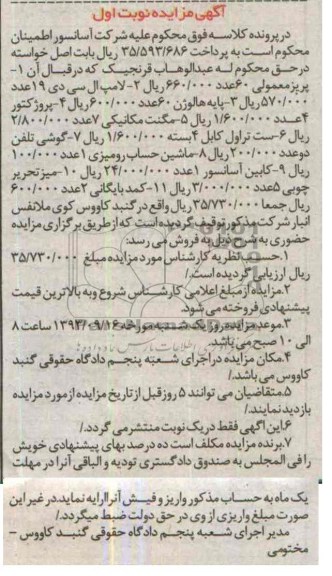 آگهی مزایده نوبت اول
درپرونده کلاسه فوق محکوم علیه شرکت آسانسور اطمینان
محکوم است به پرداخت ۳۵/۵۹۳/۶۸۶ ریال بابت اصل خواسته
درحق محکوم له عبدالوهاب قرنجیک که درقبال آن ۱-
پریز معمولی ۶۰عدد ۶۶۰/۰۰۰ ریال ۲-لامپ ال سی دی ۱۹عدد
۵۷۰/۰۰۰ریال ۳-پایه هالوژن ۶۰عدد ۶۰۰/۰۰۰ریال ۴-پروژکتور
۴عدد ۱/۶۰۰/۰۰۰ ریال ۵-مگنت مکانیکی ۷عدد ۲/۸۰۰/۰۰۰
ریال ۶-ست تراول کابل ۴بسته ۱/۶۰۰/۰۰۰ ریال ۷-گوشی تلفن
دوعدد ۲۰۰/۰۰۰ ریال ۸-ماشین حساب رومیزی ۱عدد ۱۰۰/۰۰۰
ریال ۹-کابین آسانسور ۱عدد ۲۴/۰۰۰/۰۰۰ ریال ۱۰-میز تحریر
چوبی ۵عدد ۳/۰۰۰/۰۰۰ ریال ۱۱-کمد بایگانی ۲عدد ۶۰۰/۰۰۰
ریال جمعا ۳۵/۷۳۰/۰۰۰ ریال واقع در گنبد کاووس کوی ملانفس
انبار شرکت مذکور توقیف گردیده است که ازطریق برگزاری مزایده
حضوری به شرح ذیل به فروش می رسد:
۱.حسب نظریه کارشناس مورد مزایده مبلغ ۳۵/۷۳۰/۰۰۰
ریال ارزیابی گردیده است./
۲.مزایده ازمبلغ اعلامی کارشناس شروع وبه بالاترین قیمت
پیشنهادی فروخته می شود.
۳.موعد مزایده روز یک شنبه مورخه ۱۳۹۳/۰۹/۱۶ ساعت ۸
الی ۱۰ صبح می باشد.
۴.مکان مزایده دراجرای شعبه پنجم دادگاه حقوقی گنبد
کاووس می باشد./
۵.متقاضیان می توانند ۵ روز قبل از تاریخ مزایده ازمورد مزایده
بازدید نمایند./
۶.این آگهی فقط دریک نوبت منتشر می گردد./
۷.برنده مزایده مکلف است ده درصد بهای پیشنهادی خویش
را فی المجلس به صندوق دادگستری تودیه و الباقی آنرا در مهلت
یک ماه به حساب مذکور واریز و فیش آنرا ارایه نماید.در غیر این
صورت مبلغ واریزی از وی در حق دولت ضبط میگردد./
مدیر اجرای شعبه پنجم دادگاه حقوقی گنبد کاووس -
مختومی